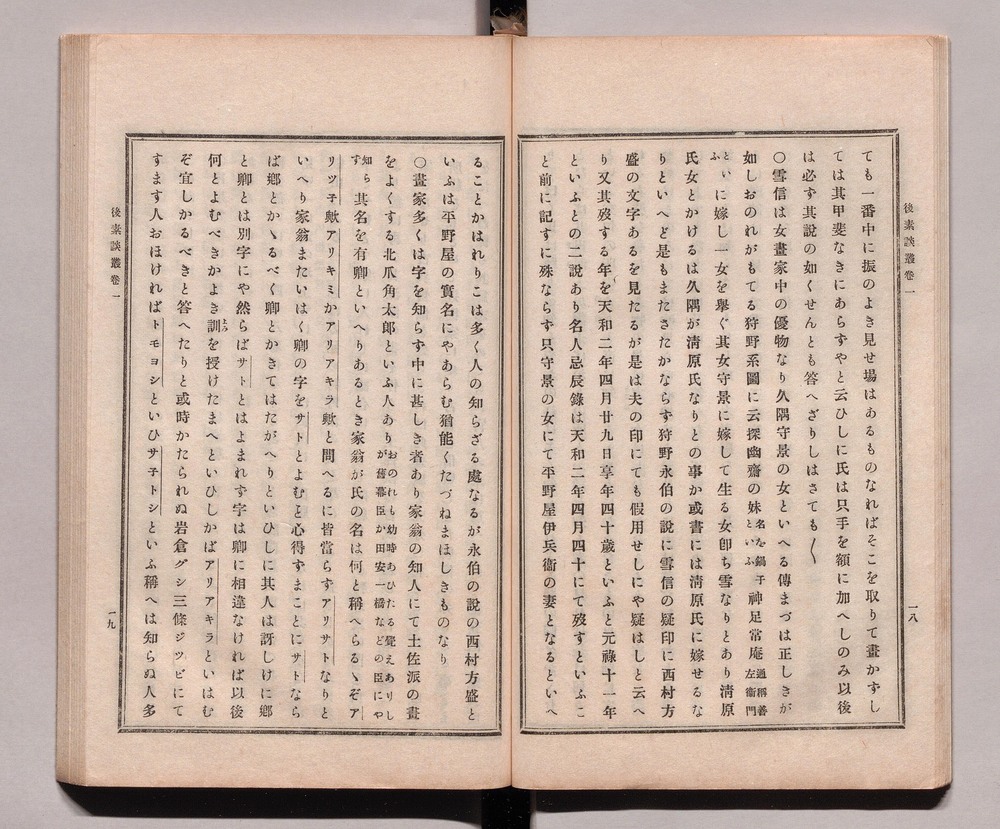 後素談叢卷一
一八
ても一番中に振のよき見せ場はあるものなればそこを取りて畫かずし
ては其甲斐なきにあらずやと云ひしに氏は只手を額に加へしのみ以後
は必ず其説の如くせんとも答へざりしはさても〱
〇雪信は女畫家中の優物なり久隅守景の女といへる傳まづは正しきが
如しおのれがもてる狩野系圖に云探幽齋の妹名を鍋子といふ神足常庵通稱善左衞門
とゝに嫁し一女を擧ぐ其女守景に嫁して生る女卽ち雪なりとあり淸原
氏女とかけるは久隅が淸原氏なりとの事か或書には淸原氏に嫁せるな
りといへど是もまたさたかならず狩野永伯の説に雪信の疑印に西村方
盛の文字あるを見たるが是は夫の印にても假用せしにや疑はしと云へ
り又其歿する年を天和二年四月廿九日享年四十歲といふと元祿十一年
といふとの二説あり名人忌辰錄は天和二年四月四十にて歿すといふこ
と前に記すに殊ならず只守景の女にて平野屋伊兵衞の妻となるといへ
ることかはれりこは多く人の知らざる處なるが永伯の説の西村方盛と
いふは平野屋の實名にやあらむ猶能くたづねまほしきものなり
〇畫家多くは字を知らず中に甚しき者あり家翁の知人にて土佐派の畫
をよくする北爪角太郎といふ人ありおのれも幼時あひたる覺えありしが舊幕臣か田安一橋などの臣にや
知らず其名を有卿といへりあるとき家翁が氏の名は何と稱へらるゝぞア
リツ子歟アリキミかアリアキラ歟と問へるに皆當らずアリサトなりと
いへり家翁またいはく卿の字をサトとよむと心得ずまことにサトなら
ば鄕とかゝるべく卿とかきてはたがへりといひしに其人は訝しけに鄕
と卿とは別字にや然らばサトとはよまれず字は卿に相違なければ以後
何とよむべきかよき訓よみを授けたまへといひしかばアリアキラといはむ
ぞ宜しかるべきと答へたりと或時かたられぬ岩倉グシ三條ジツビにて
すます人おほければトモヨシといひサ子トシといふ稱へは知らぬ人多
後素談叢卷一
一九